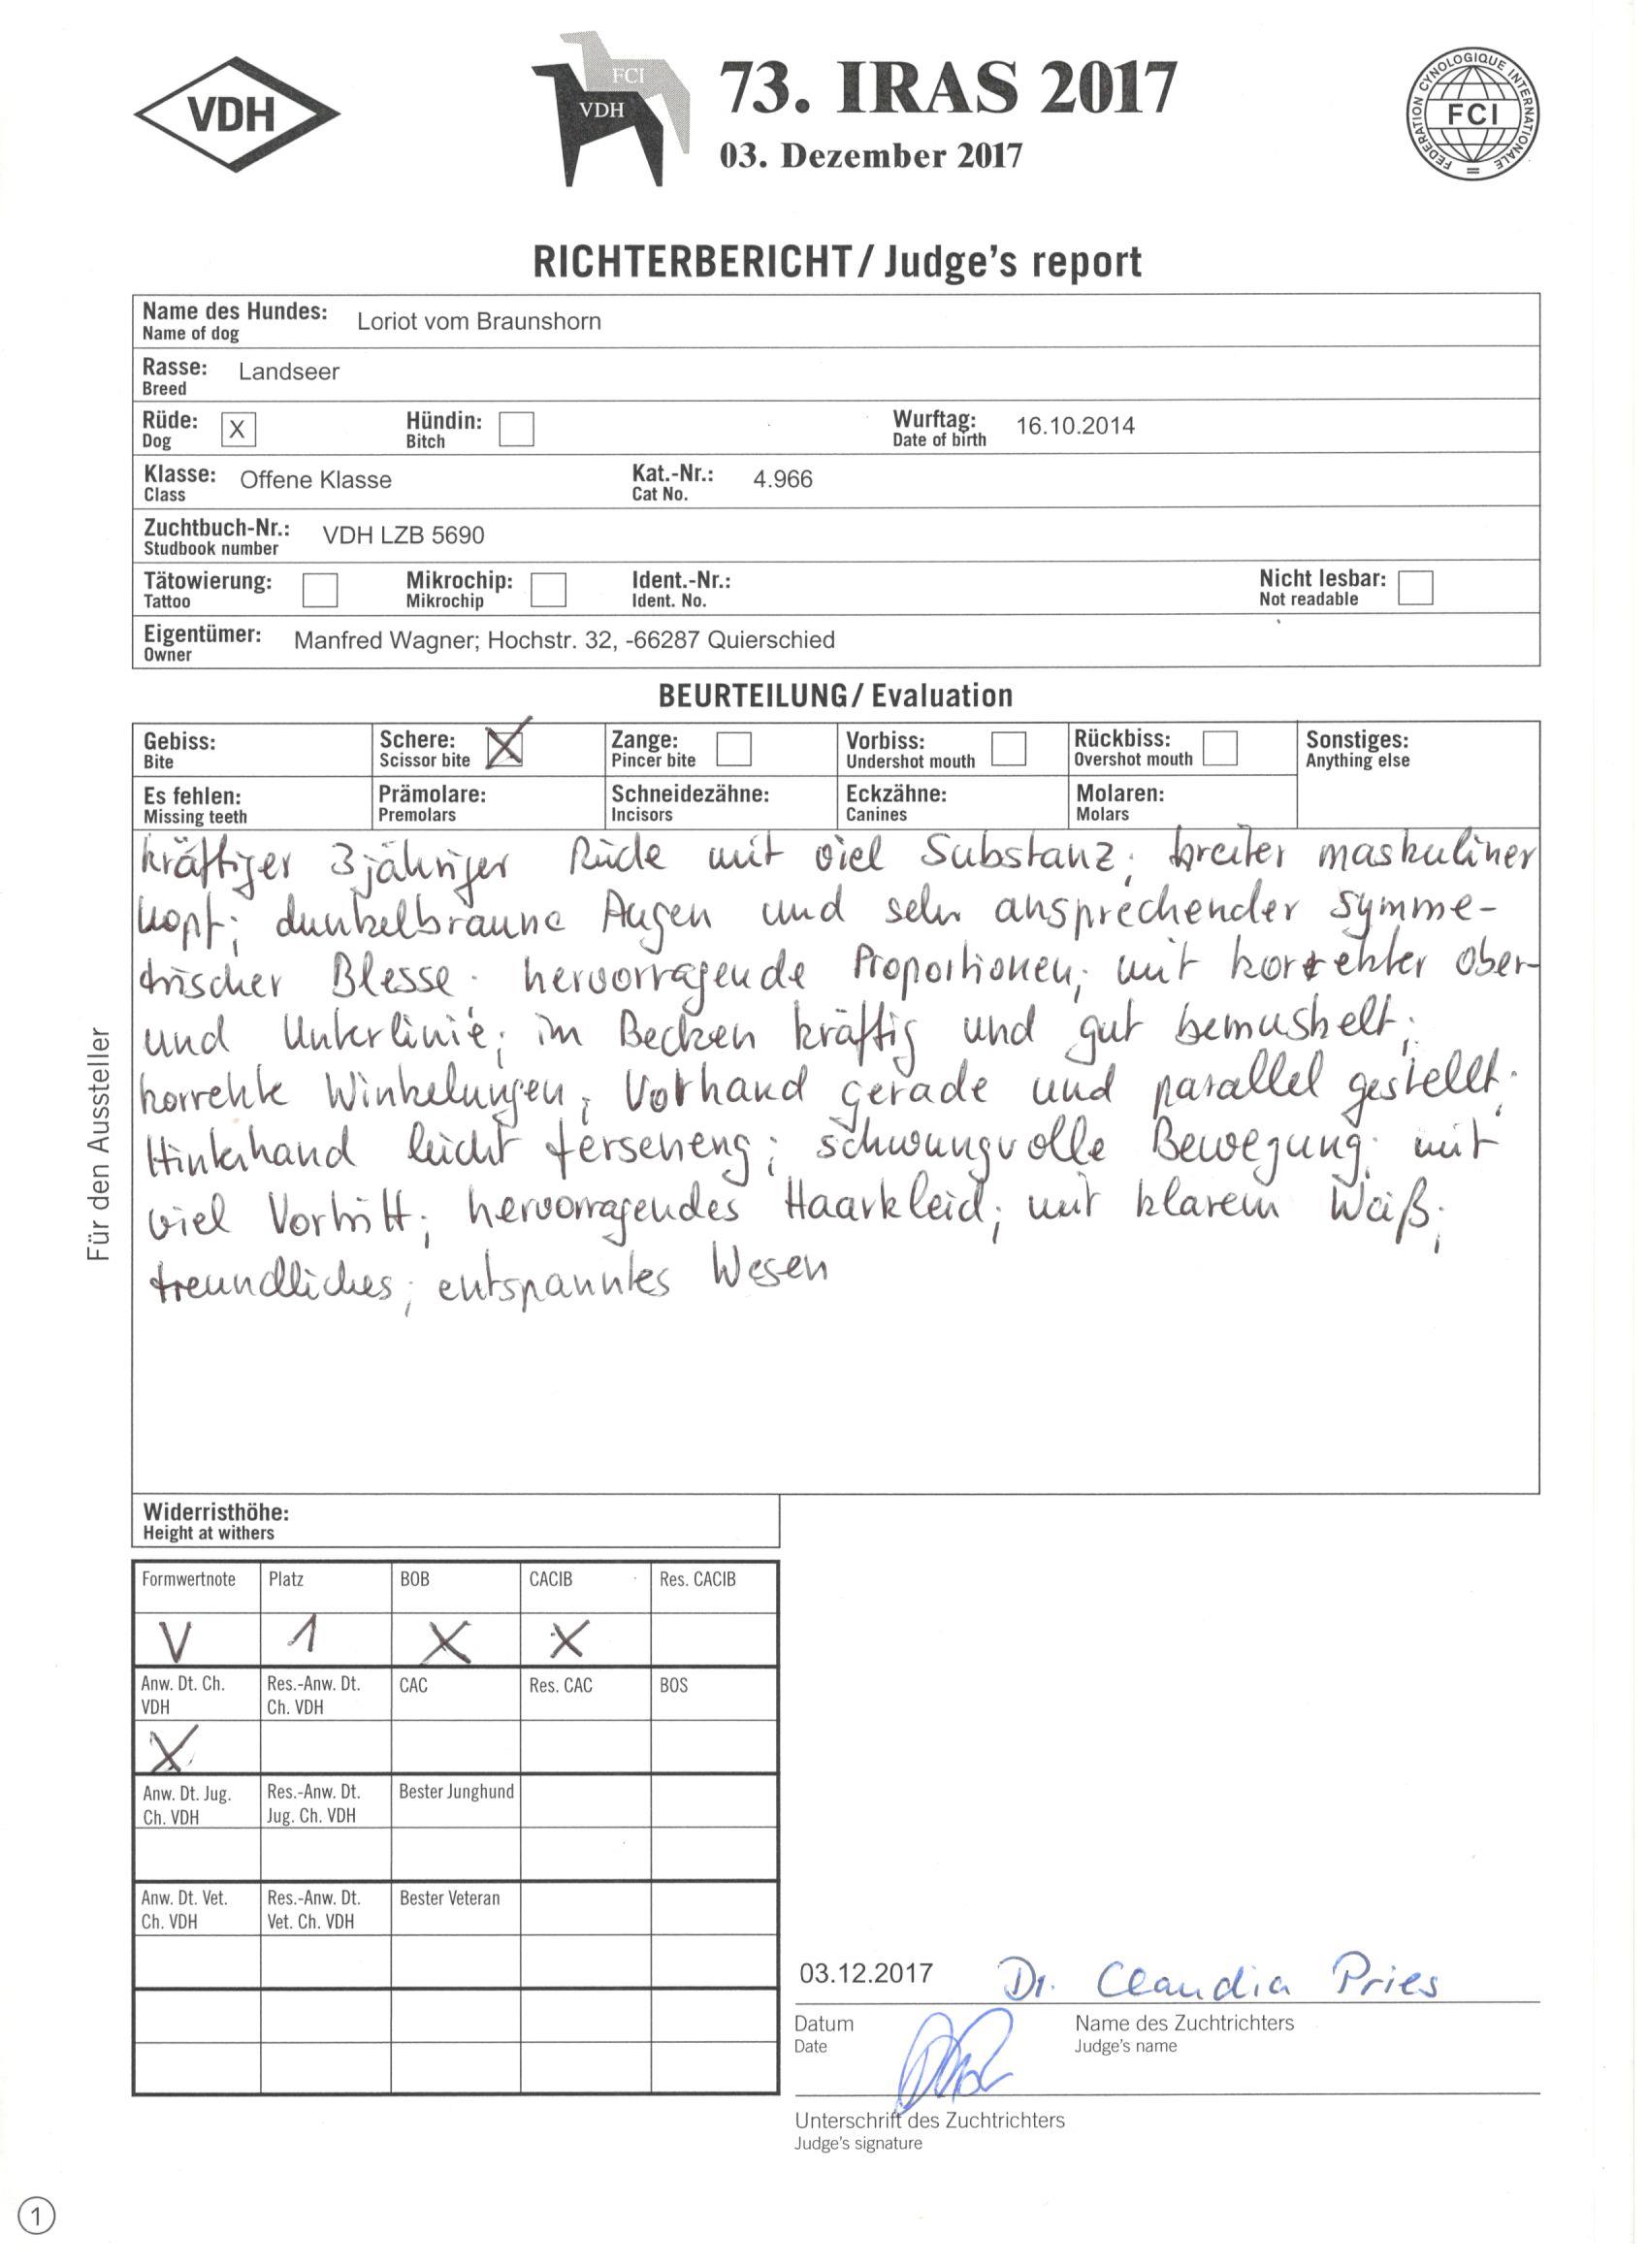 VDH
FCI
VDH
73. IRAS 2017
03. Dezember 2017
FEDERATION CYNOLOGIQUE INTERNATIONALE
FCI
RICHTERBERICHT / Judge's report
Name des Hundes: Loriot vom Braunshorn
Name of dog
Rasse: Landseer
Breed
Rüde: X Hündin: Wurftag: 16.10.2014
Dog Bitch Date of birth
Klasse: Offene Klasse Kat.-Nr.: 4.966
Class Cat No.
Zuchtbuch-Nr.: VDH LZB 5690
Studbook number
Tätowierung: Mikrochip: Ident.-Nr.: Nicht lesbar:
Tattoo Mikrochip Ident. No. Not readable
Eigentümer: Manfred Wagner; Hochstr. 32, -66287 Quierschied
Owner
BEURTEILUNG / Evaluation
Gebiss: Schere: X Zange: Vorbiss: Rückbiss: Sonstiges:
Bite Scissor bite Pincer bite Undershot mouth Overshot mouth Anything else
Es fehlen: Prämolare: Schneidezähne: Eckzähne: Molaren:
Missing teeth Premolars Incisors Canines Molars
kräftiger 3jähriger Rüde mit viel Substanz; breiter maskuliner
Kopf; dunkelbraune Augen und sehr ansprechender symme-
trischer Blesse. hervorragende Proportionen; mit korrekter Ober-
und Unterlinie; im Becken kräftig und gut bemuskelt;
korrekte Winkelungen; Vorhand gerade und parallel gestellt;
Hinterhand leichtferseneng; schwungvolle Bewegung; mit
viel Vortritt; hervorragendes Haarkleid; mit klarem Weiß;
freundliches; entspanntes Wesen
Für den Aussteller
Widerristhöhe:
Height at withers
Formwertnote Platz BOB CACIB Res. CACIB
V 1 X X
Anw. Dt. Ch. Res.-Anw. Dt. CAC Res. CAC BOS
VDH Ch. VDH
X
Anw. Dt. Jug. Res.-Anw. Dt. Bester Junghund
Ch. VDH Jug. Ch. VDH
Anw. Dt. Vet. Res.-Anw. Dt. Bester Veteran
Ch. VDH Vet. Ch. VDH
03.12.2017 Dr. Claudia Pries
Datum Name des Zuchtrichters
Date Judge's name
Unterschrift des Zuchtrichters
Judge's signature
1